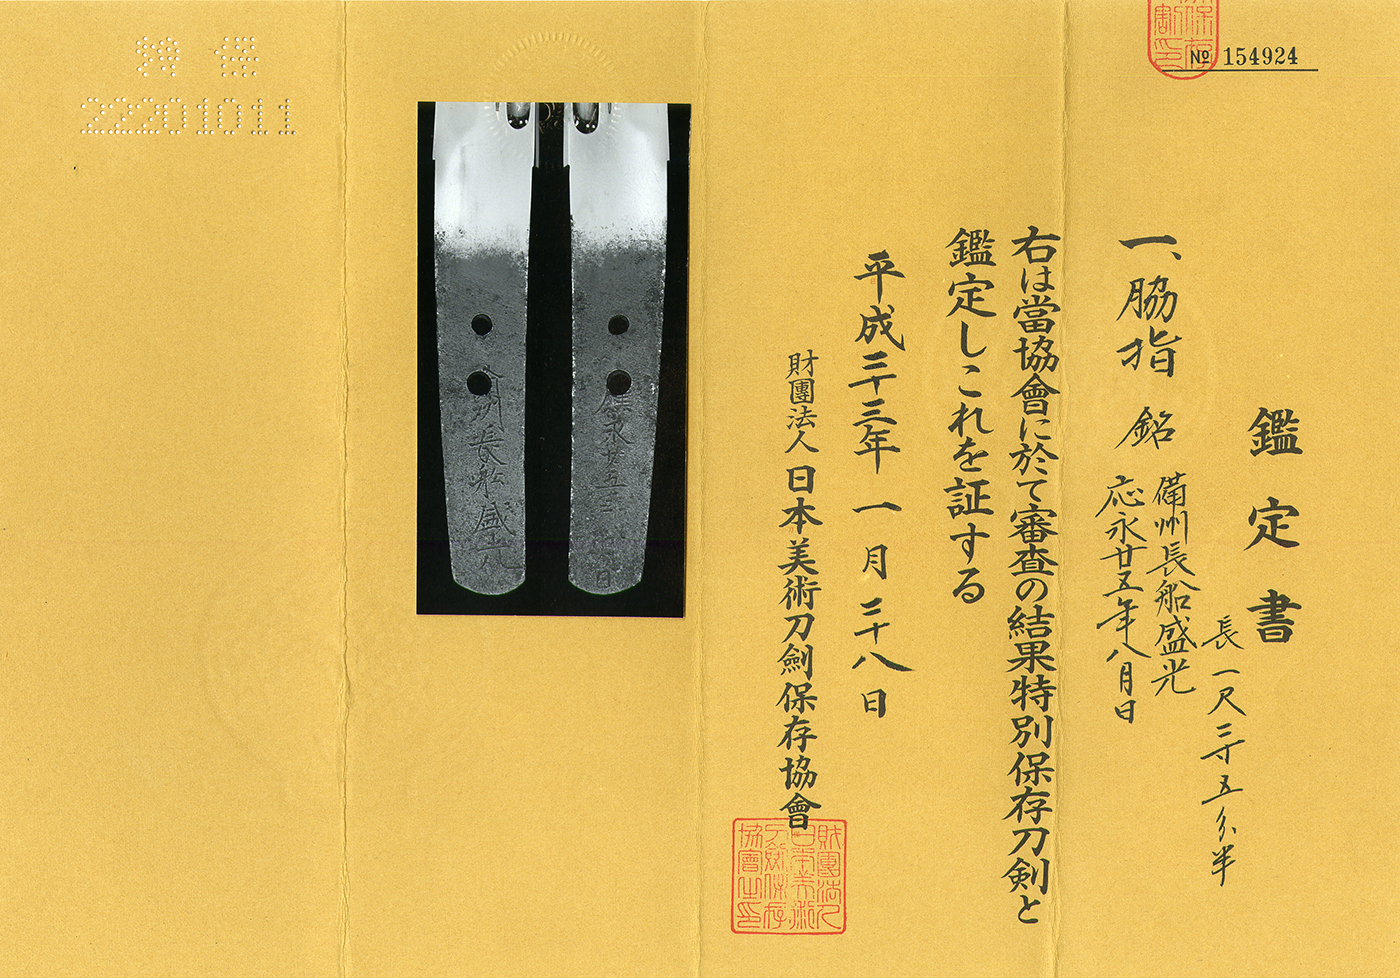 No 154924
保存
割印
鑑定書
一、脇指 銘 備州長船盛光
応永廿五年八月日
長一尺三寸五分半
右は當協會に於て審査の結果特別保存刀剣と
鑑定しこれを証する
平成二十三年一月二十八日
財團法人日本美術刀劍保存協會
財團法人
日本美術
刀劍保存
協會之印
州長舩盛光
永廿五年
日
22201011